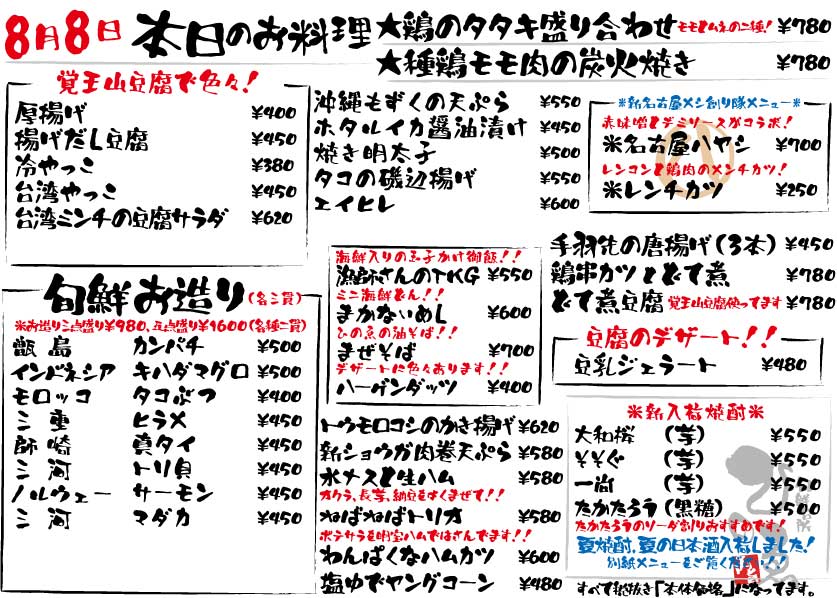 8月8日 本日のお料理
★鶏のタタキ盛り合わせ モモとムネの二種! ¥780
★種鶏モモ肉の炭火焼き ¥780
覚王山豆腐で色々!
厚揚げ ¥400
揚げだし豆腐 ¥450
冷やっこ ¥380
台湾やっこ ¥450
台湾ミンチの豆腐サラダ ¥620
沖縄もずくの天ぷら ¥550
ホタルイカ醤油漬け ¥450
焼き明太子 ¥500
タコの磯辺揚げ ¥550
エイヒレ ¥600
※新名古屋メシ創り隊メニュー※
赤味噌とデミソースがコラボ!
※名古屋ハヤシ ¥700
レンコンと鶏肉のメンチカツ!
※レンチカツ ¥250
手羽先の唐揚げ(3本) ¥450
鶏串カツとどて煮 ¥780
どて煮豆腐 覚王山豆腐使ってます ¥780
旬鮮お造り(各三貫)
※お造り三点盛り¥980、五点盛り¥1600(各種二貫)
甑島 カンパチ ¥500
インドネシア キハダマグロ ¥500
モロッコ タコぶつ ¥400
三重 ヒラメ ¥450
師崎 真タイ ¥450
三河 トリ貝 ¥450
ノルウェー サーモン ¥450
三河 マダカ ¥450
海鮮入りの玉子かけ御飯!!
漁師さんのTKG ¥550
ミニ海鮮どん!!
まかないめし ¥600
ひの魚の油そば!!
まぜそば ¥700
デザートに色々あります!!
ハーゲンダッツ ¥400
トウモロコシのかき揚げ ¥620
新ショウガ肉巻天ぷら ¥580
水ナスと生ハム ¥580
オクラ、長芋、納豆をよくまぜて!!
ねばねばトリオ ¥580
ポテサラを明宝ハムではさんでます!
わんぱくなハムカツ ¥600
塩ゆでヤングコーン ¥480
豆腐のデザート!!
豆乳ジェラート ¥480
※新入荷焼酎※
大和桜 (芋) ¥550
そそぐ (芋) ¥550
一尚 (芋) ¥550
たかたろう(黒糖) ¥500
たかたろうのソーダ割りおすすめです!
夏焼酎、夏の日本酒入荷しました!
別紙メニューをご覧ください!!
すべて税抜き「本体価格」になってます。